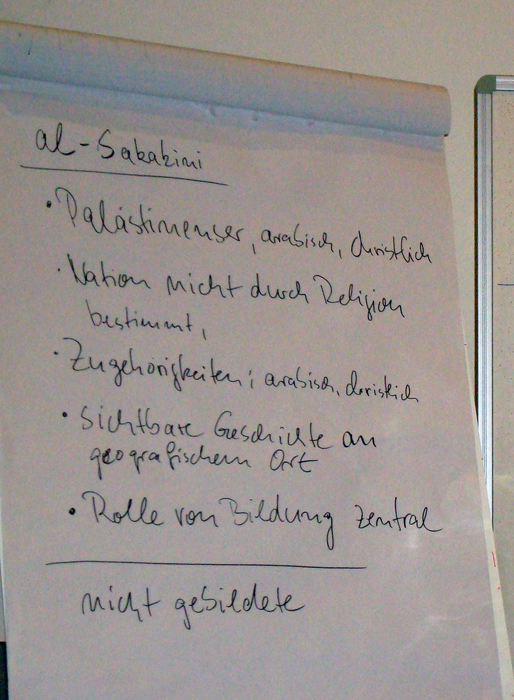 al-Sakakini
• Palästinenser, arabisch, christlich
• Nation nicht durch Religion
bestimmt,
• Zugehörigkeiten: arabisch, christlich
• sichtbare Geschichte an
geografischem Ort
• Rolle von Bildung zentral
nicht gebildete